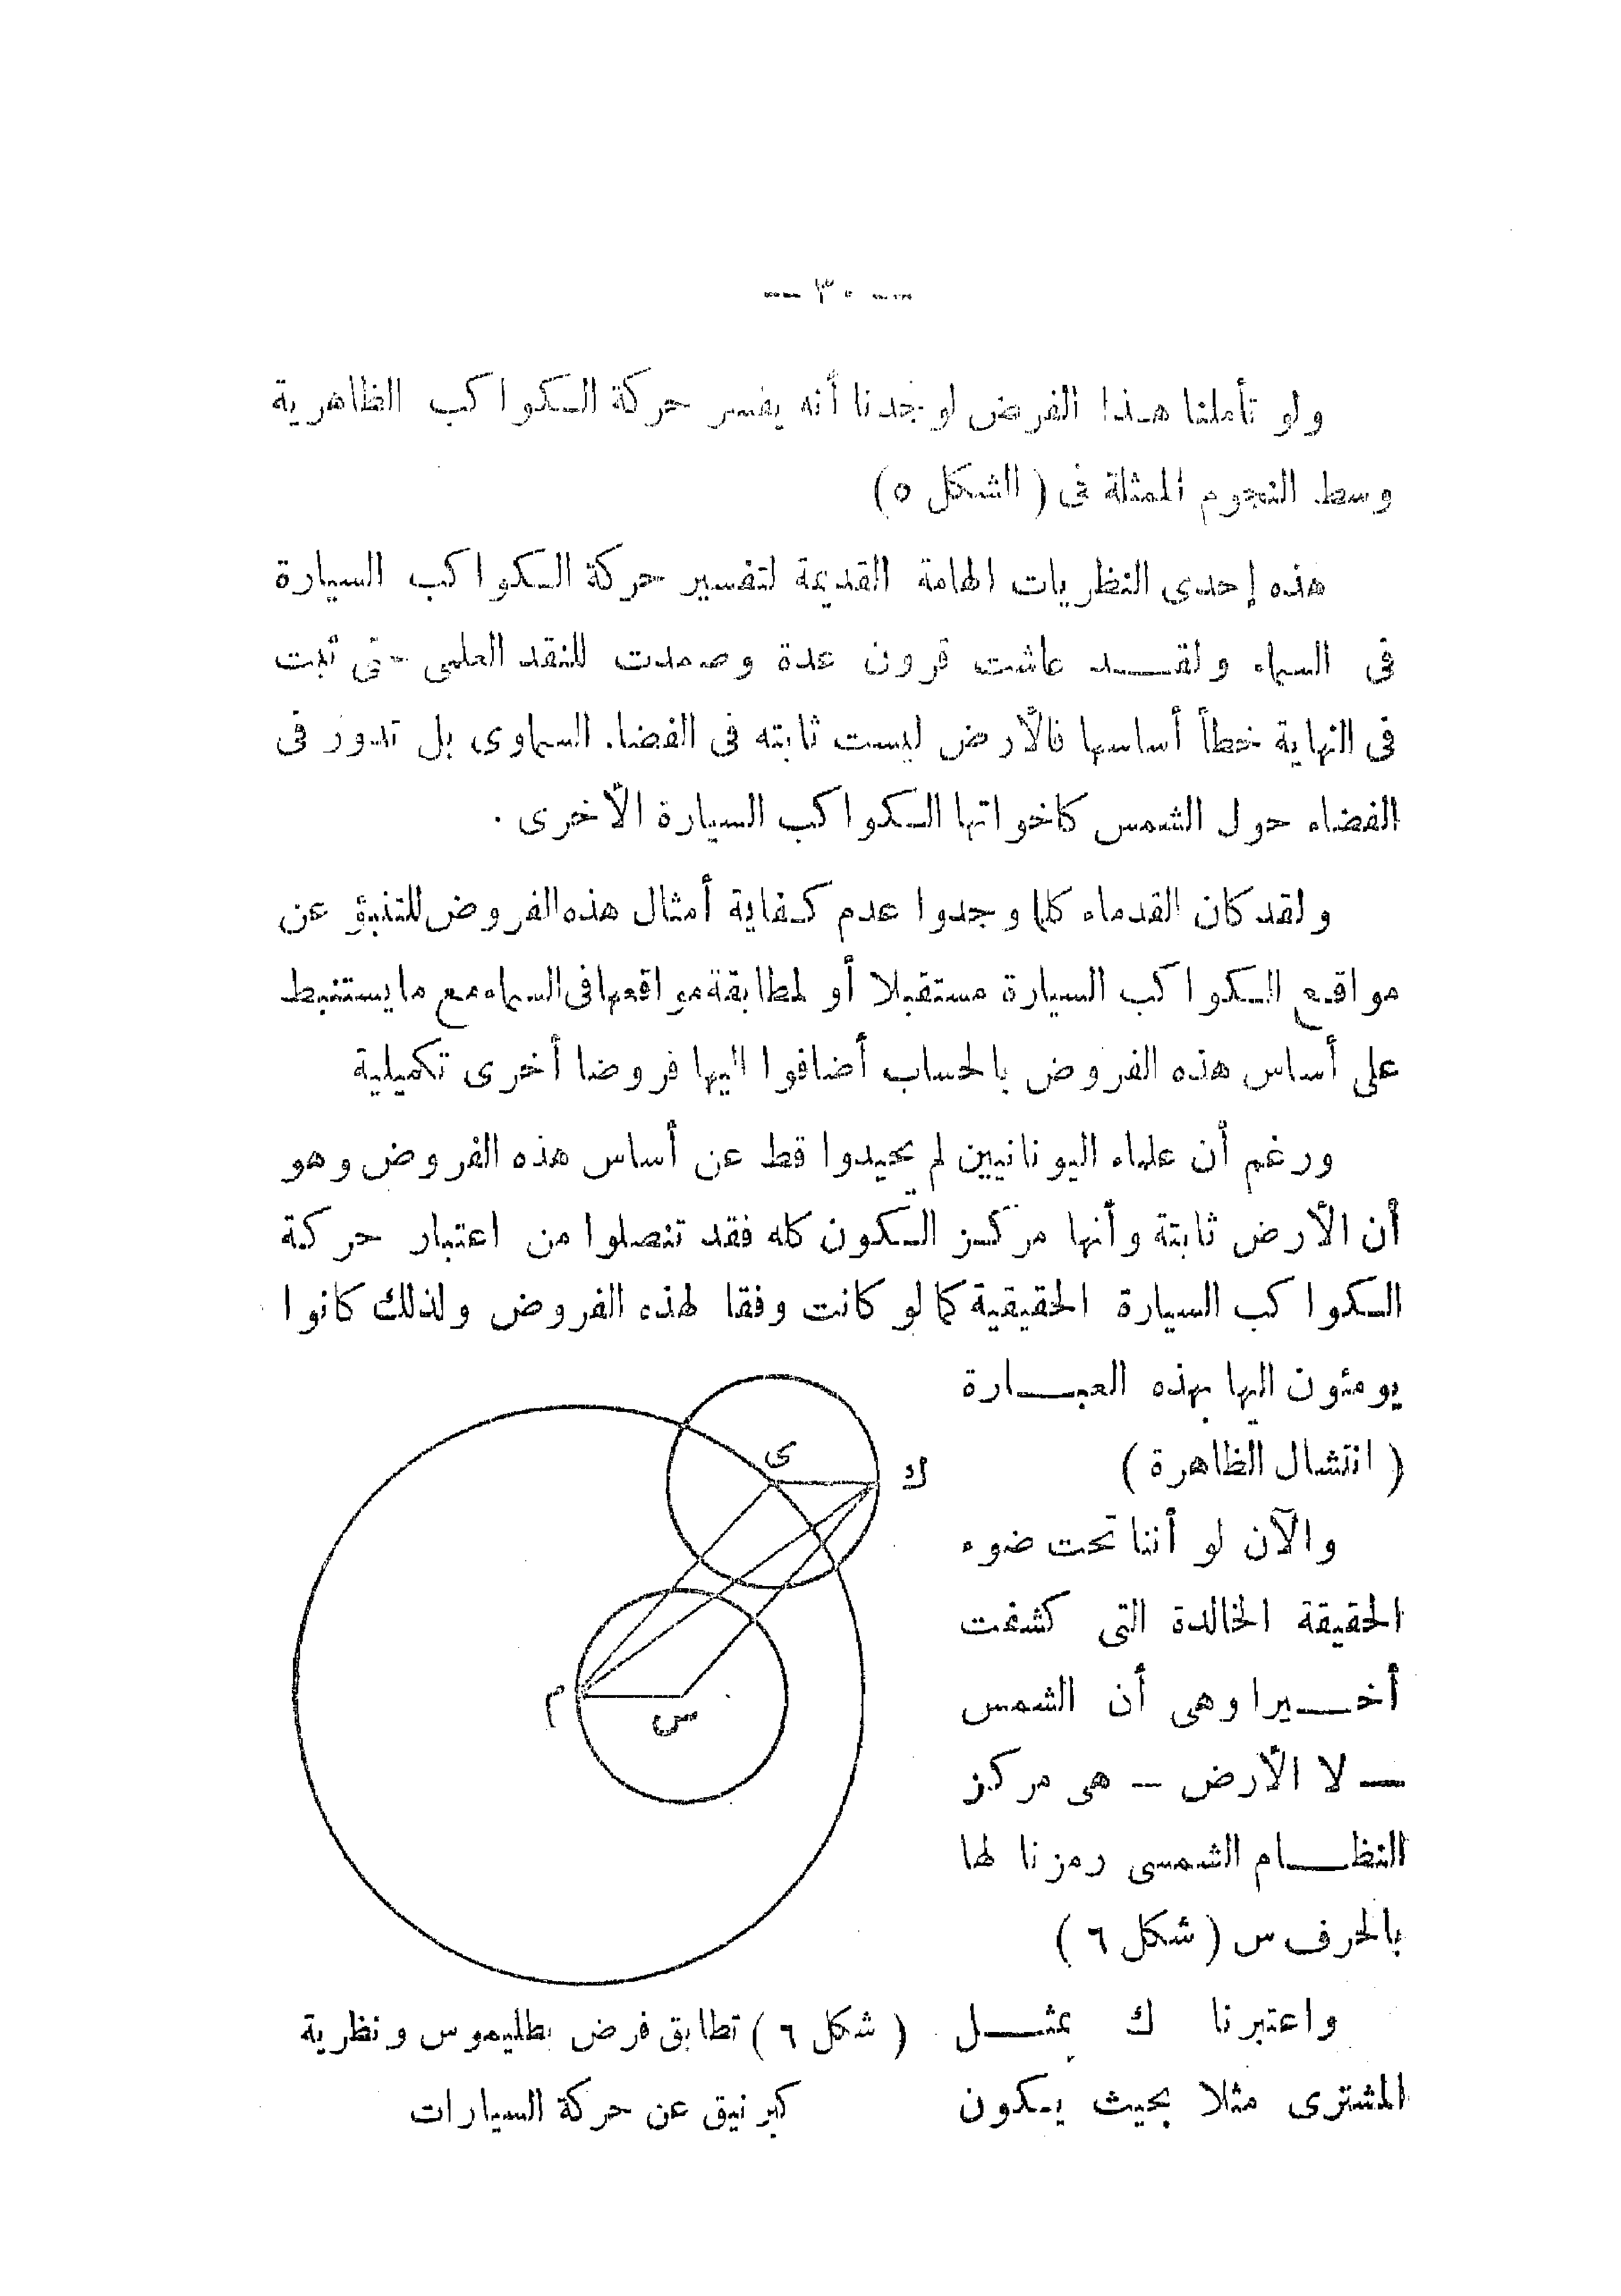 — ٣٠ —
ولو تأملنا هذا الفرض لوجدنا أنه يفسر حركة الكواكب الظاهرية
وسط النجوم الممثلة فى (الشكل ٥)
هذه إحدى النظريات الهامة القديمة لتفسير حركة الكواكب السيارة
فى السماء ولقد عاشت قرون عدة وصمدت للنقد العلمى حتى ثبت
فى النهاية خطأ أساسها فالأرض ليست ثابته فى الفضاء السماوى بل تدور فى
الفضاء حول الشمس كاخواتها الكواكب السيارة الأخرى .
ولقد كان القدماء كلما وجدوا عدم كفاية أمثال هذه الفروض للتنبؤ عن
مواقع الكواكب السيارة مستقبلا أو لمطابقة مواقعها فى السماء مع ما يستنبط
على أساس هذه الفروض بالحساب أضافوا اليها فروضا أخرى تكميلية
ورغم أن علماء اليونانيين لم يحيدوا قط عن أساس هذه الفروض وهو
أن الأرض ثابتة وأنها مركز الكون كله فقد تنصلوا من اعتبار حركة
الكواكب السيارة الحقيقية كما لو كانت وفقا لهذه الفروض ولذلك كانوا
يومئون اليها بهذه العبارة
( انتشال الظاهرة )
والآن لو أننا تحت ضوء
الحقيقة الخالدة التى كشفت
أخيرا وهى أن الشمس
— لا الأرض — هى مركز
النظام الشمسى رمزنا لها
بالحرف س ( شكل ٦ )
واعتبرنا ك يمثل
المشترى مثلا بحيث يكون
ى
ك
م
س
( شكل ٦ ) تطابق فرض بطليموس ونظرية
كبرنيق عن حركة السيارات